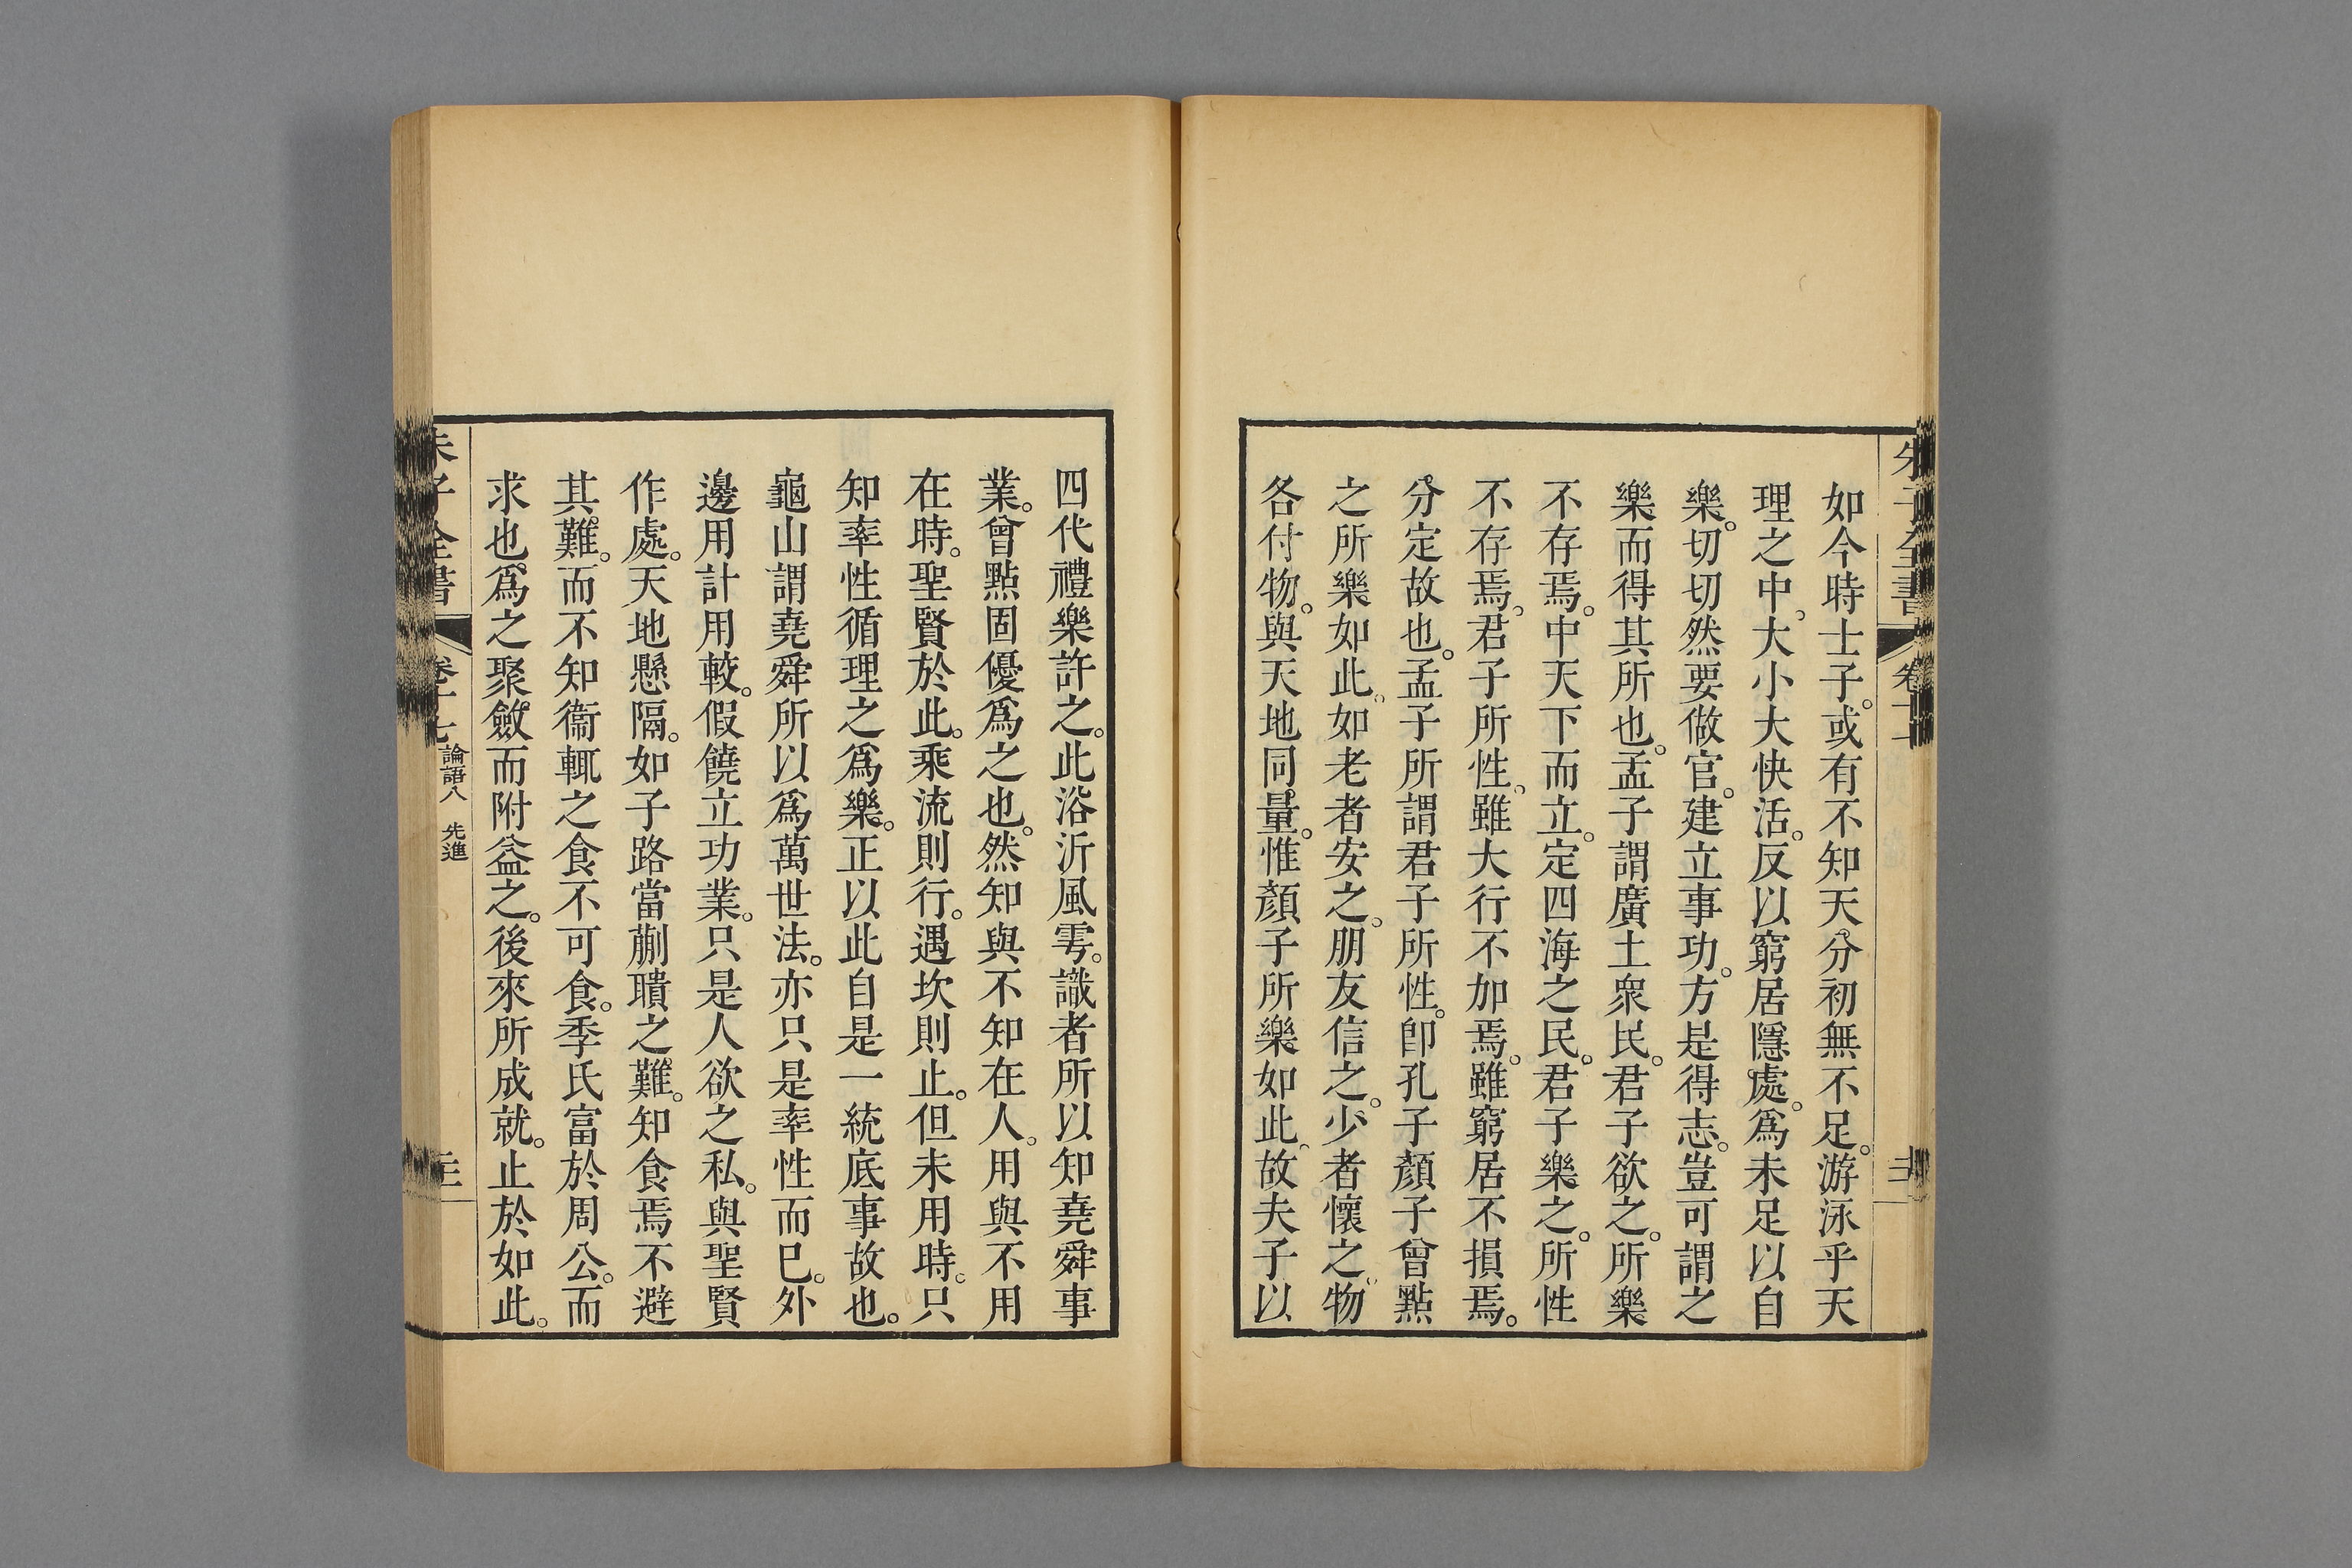 如今時士子。或有不知天分初無不足。游泳乎天
理之中、大小大快活。反以窮居隱處。爲未足以自
樂。切切然要做官。建立事功。方是得志。豈可謂之
樂而得其所也。孟子謂廣土衆民。君子欲之。所樂
不存焉。中天下而立。定四海之民。君子樂之。所性
不存焉。君子所性、雖大行不加焉。雖窮居不損焉。
分定故也。孟子所謂君子所性。卽孔子顏子曾點
之所樂如此、如老者安之。朋友信之。少者懷之、物
各付物。與天地同量。惟顏子所樂如此、故夫子以
四代禮樂許之。此浴沂風雩。識者所以知堯舜事
業。曾點固優爲之也。然知與不知在人。用與不用
在時。聖賢於此。乘流則行。遇坎則止。但未用時。只
知率性循理之爲樂。正以此自是一統底事故也。
龜山謂堯舜所以爲萬世法。亦只是率性而已。外
邊用計用較。假饒立功業。只是人欲之私。與聖賢
作處。天地懸隔。如子路當蒯聵之難。知食焉不避
其難。而不知衞輒之食不可食。季氏富於周公。而
求也爲之聚斂而附益之。後來所成就。止於如此。
朱子全書
卷十七
論語八 先進